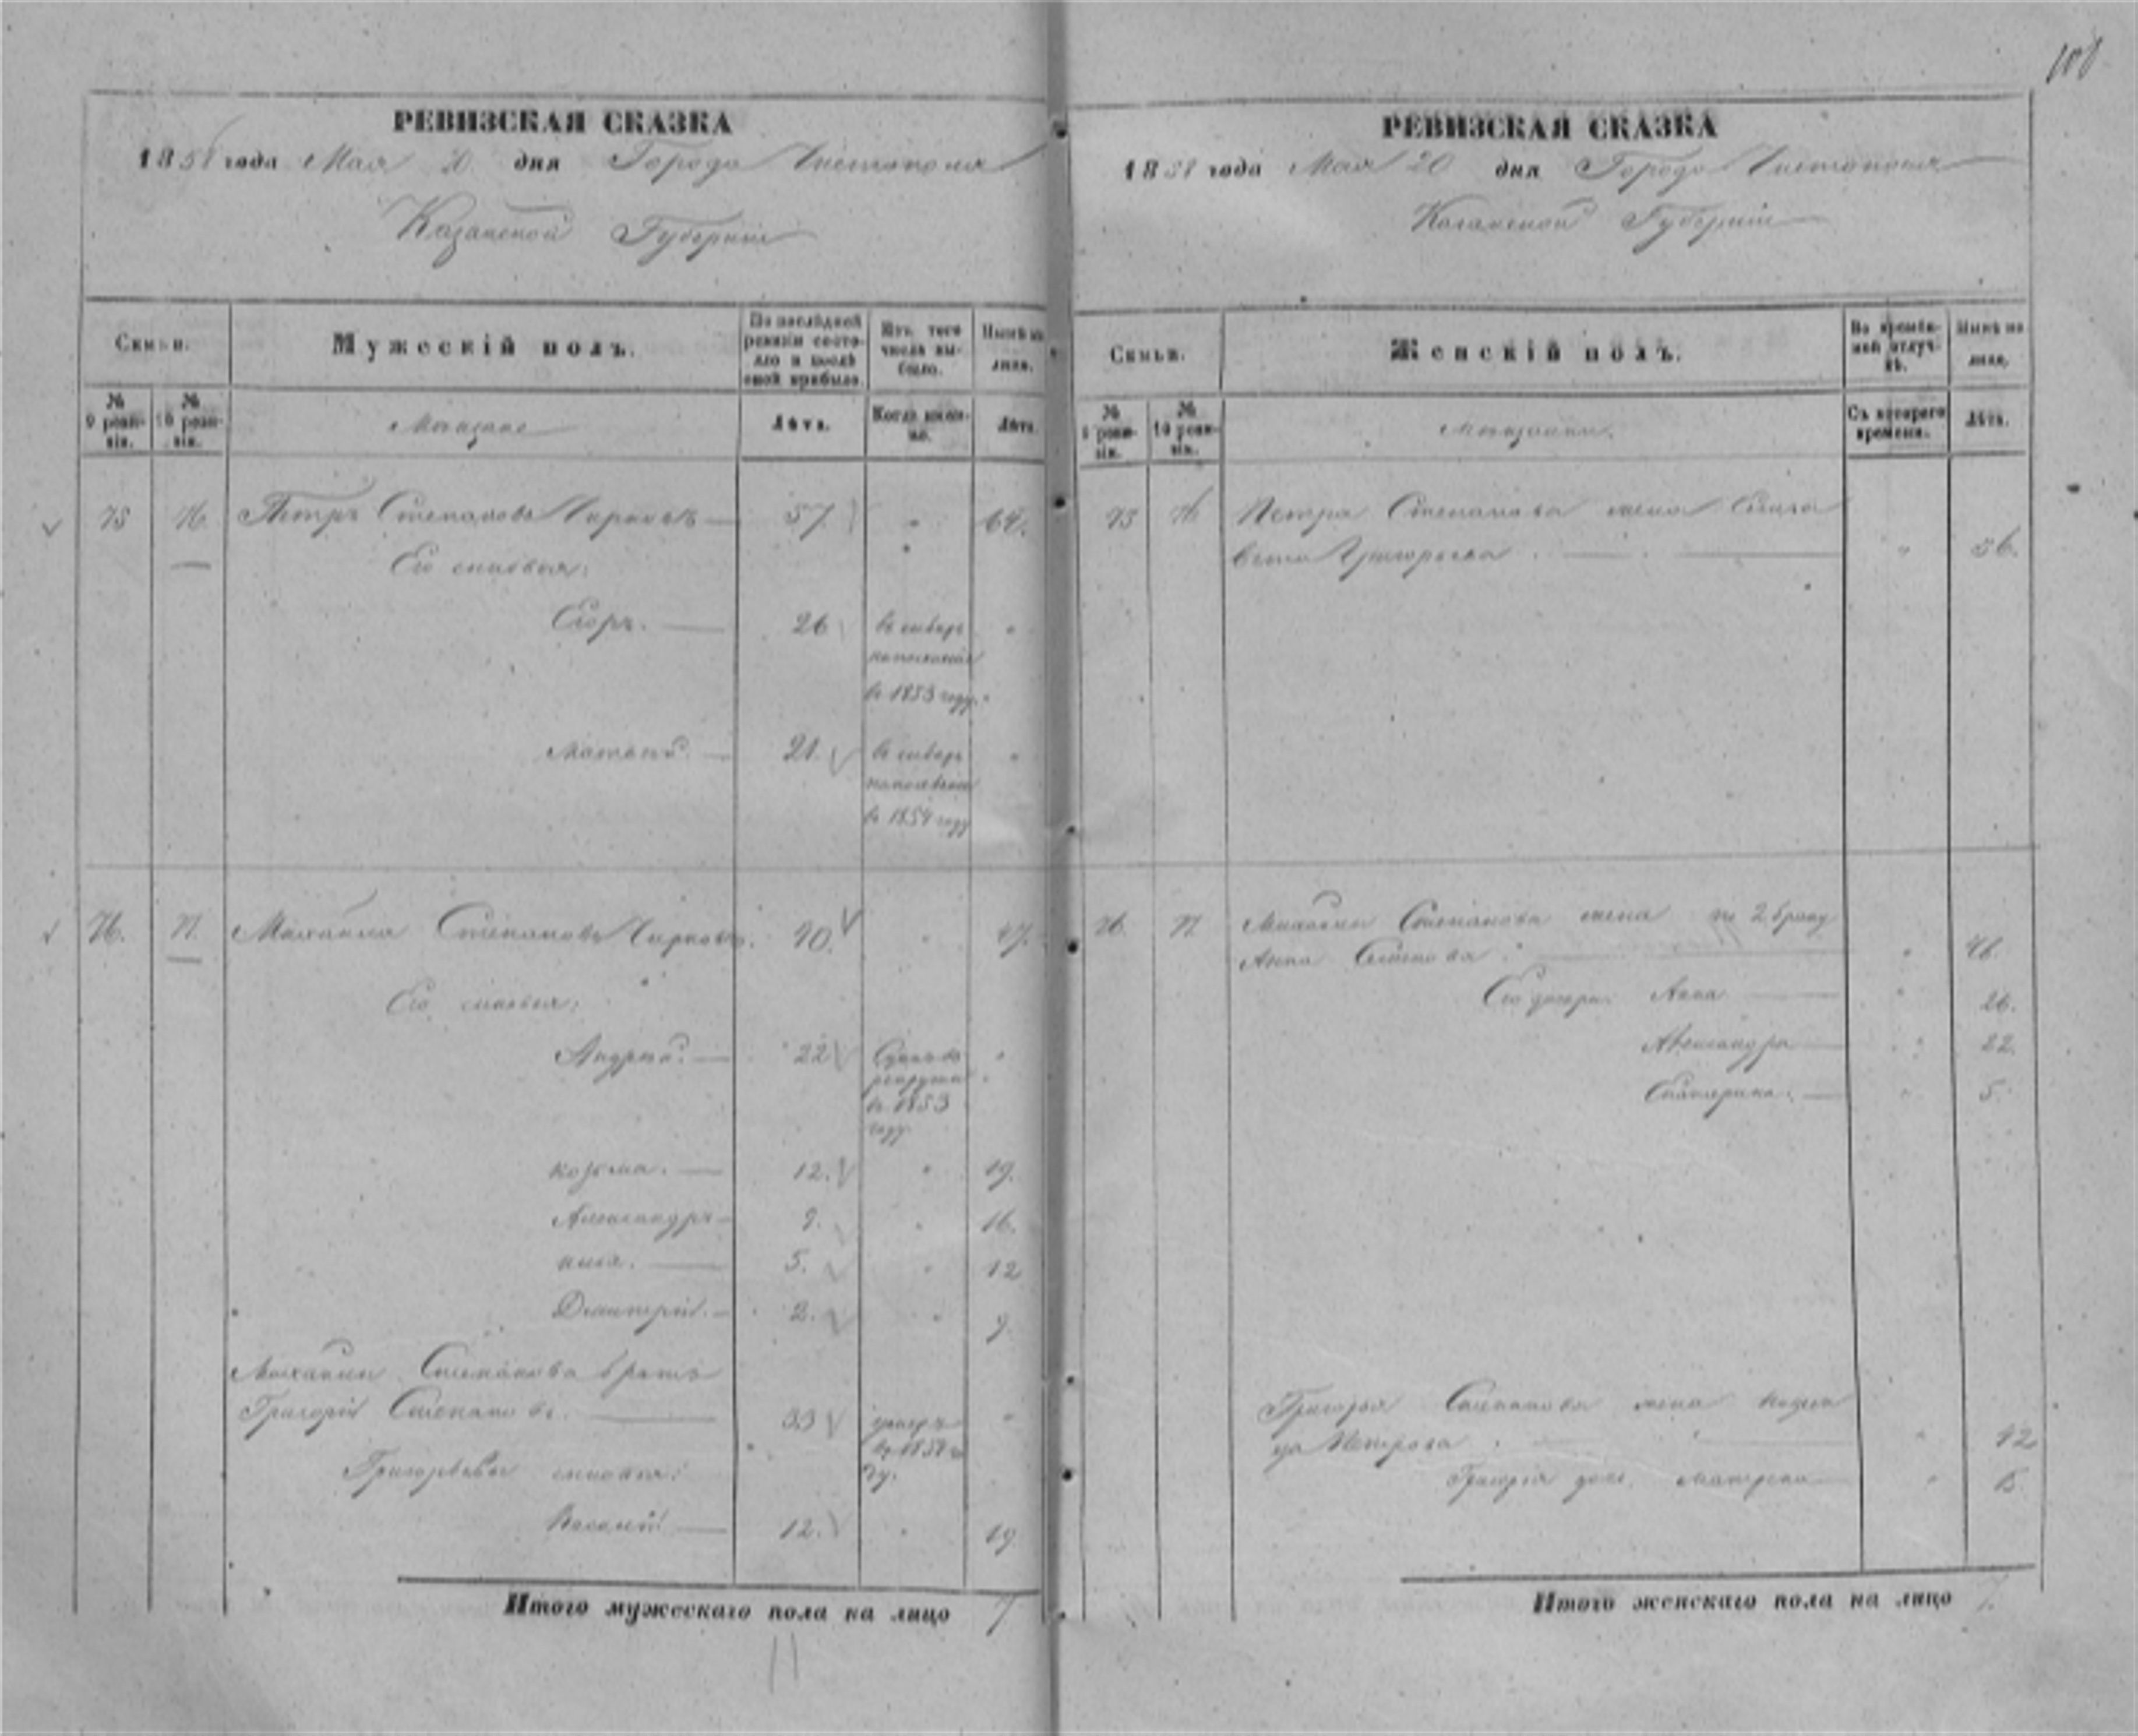 108
РЕВИЗСКАЯ СКАЗКА
1858 года Мая 20 дня Города Чистополя
Казанской Губерніи
Семьи.
Мужескій полъ.
По послѣдней ревизіи состояло и послѣ оной прибыло.
Изъ того числа выбыло.
Нынѣ на лицо.
№ 9 ревизіи.
№ 10 ревизіи.
Мещане
Лѣта.
Когда именно.
Лѣта.
75 76 Петръ Степановъ Чирковъ 57 " 64.
Его сыновья:
Егоръ. 26 "
в 1853 году.
Матвей. 21. "
в 1854 году
76. 77. Михаила Степановъ Чирковъ. 40. " 47.
Его сыновья:
Андрей. 22 "
рекруты
в 1853
году
Козьма. 12. " 19.
Александръ 9. " 16.
Илья. 5. " 12
Дмитрій. 2. " 9.
Михаилы Степанова братъ
Григорій Степановъ. 33 умеръ "
в 1851 го
ду.
Григорьевы сыновья:
Василій 12. " 19
Итого мужескаго пола на лицо 7
11
РЕВИЗСКАЯ СКАЗКА
1858 года Мая 20 дня Города Чистополя
Казанской Губерніи
Семьи.
Женскій полъ.
Во временной отлучкѣ.
Нынѣ на лицо.
№ 9 ревизіи.
№ 10 ревизіи.
Мещанки.
Съ котораго времени.
Лѣта.
75 76 Петра Степанова жена Елиза
вета Григорьева. " 56.
76. 77 Михаилы Степанова жена по 2 браку
Анна " 46.
Его дочери: Анна " 26.
Александра " 22.
Екатерина. " 5.
Григорья Степанова жена
Петрова. " 42
Григорія дочь Матрена " 15
Итого женскаго пола на лицо 7.